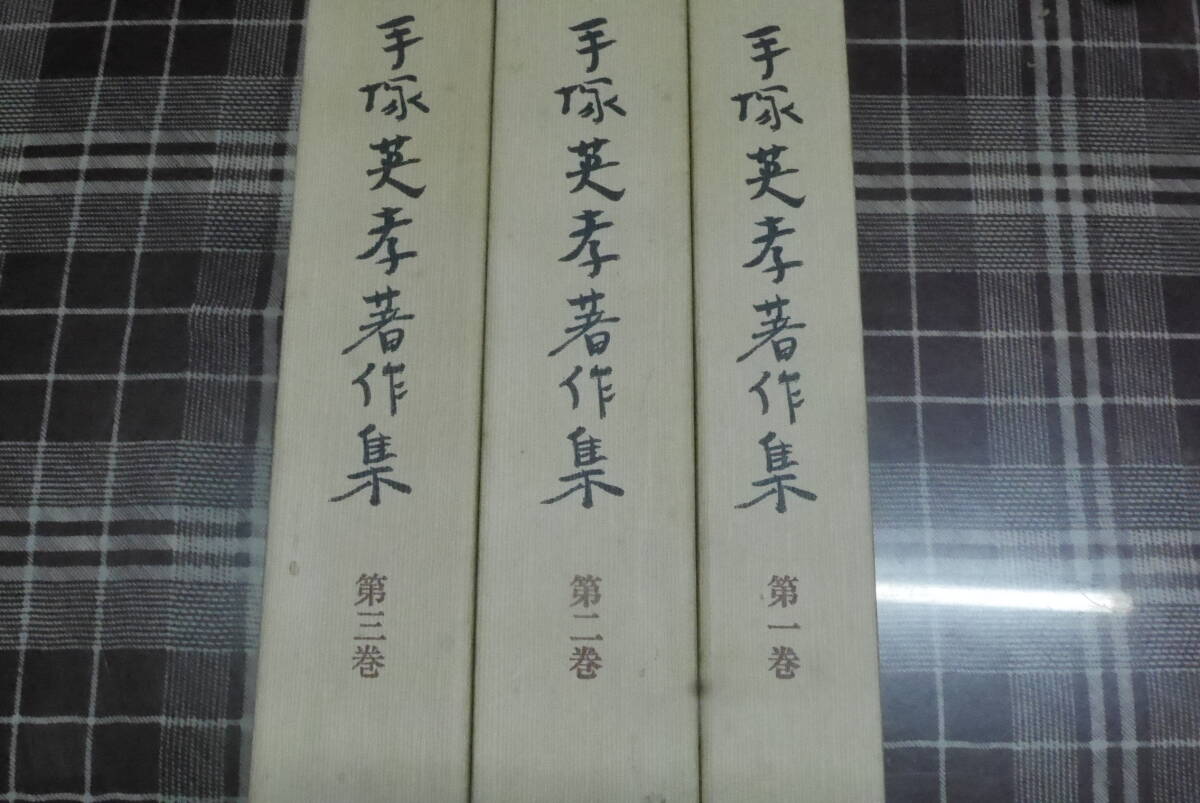 手塚英孝著作集
第一巻
手塚英孝著作集
第二巻
手塚英孝著作集
第三巻